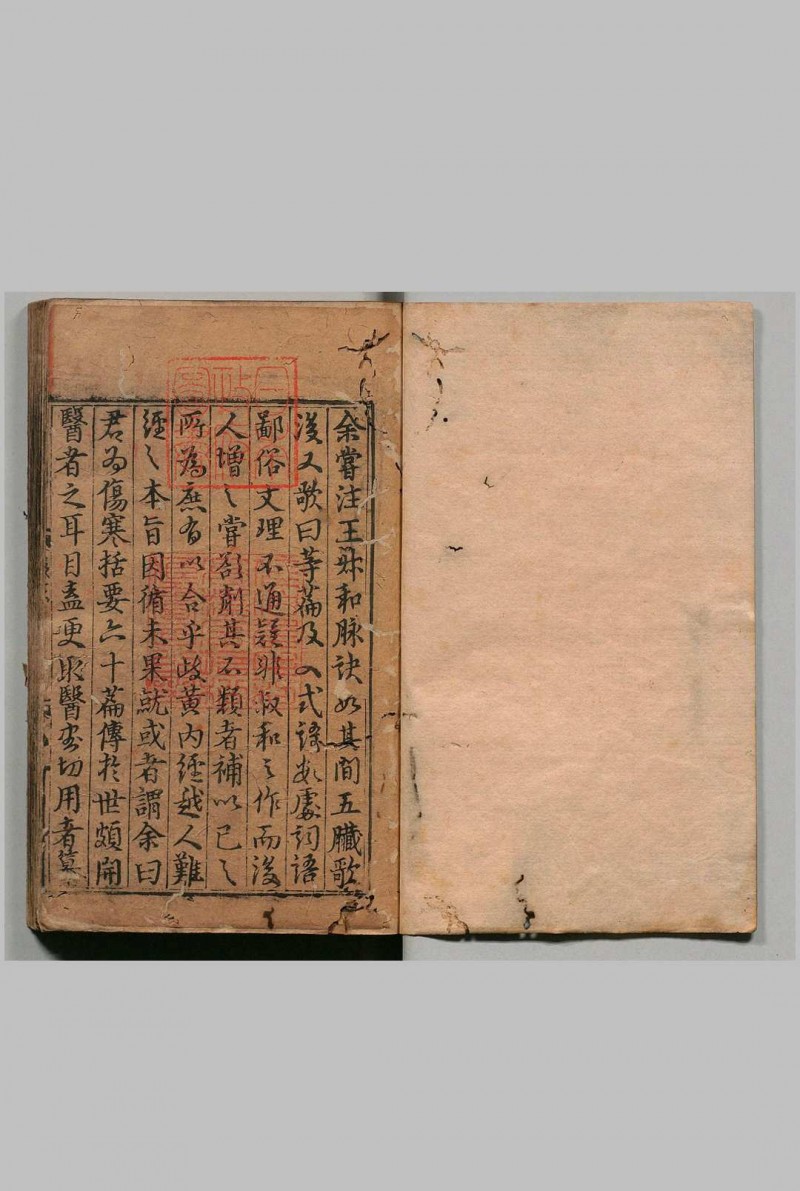 余嘗注王叔和脉訣如其間五臟歌
後又歌曰等篇及入式謌数處詞語
鄙俗文理不通疑非叔和之作而後
人增之嘗刪削其不類者補以己之
所為庶有以合乎岐黄内經越人難
經之本旨因循未果就或者謂余曰
君為傷寒括要六十篇傳於世頗開
醫者之耳目盍更取醫書切用者